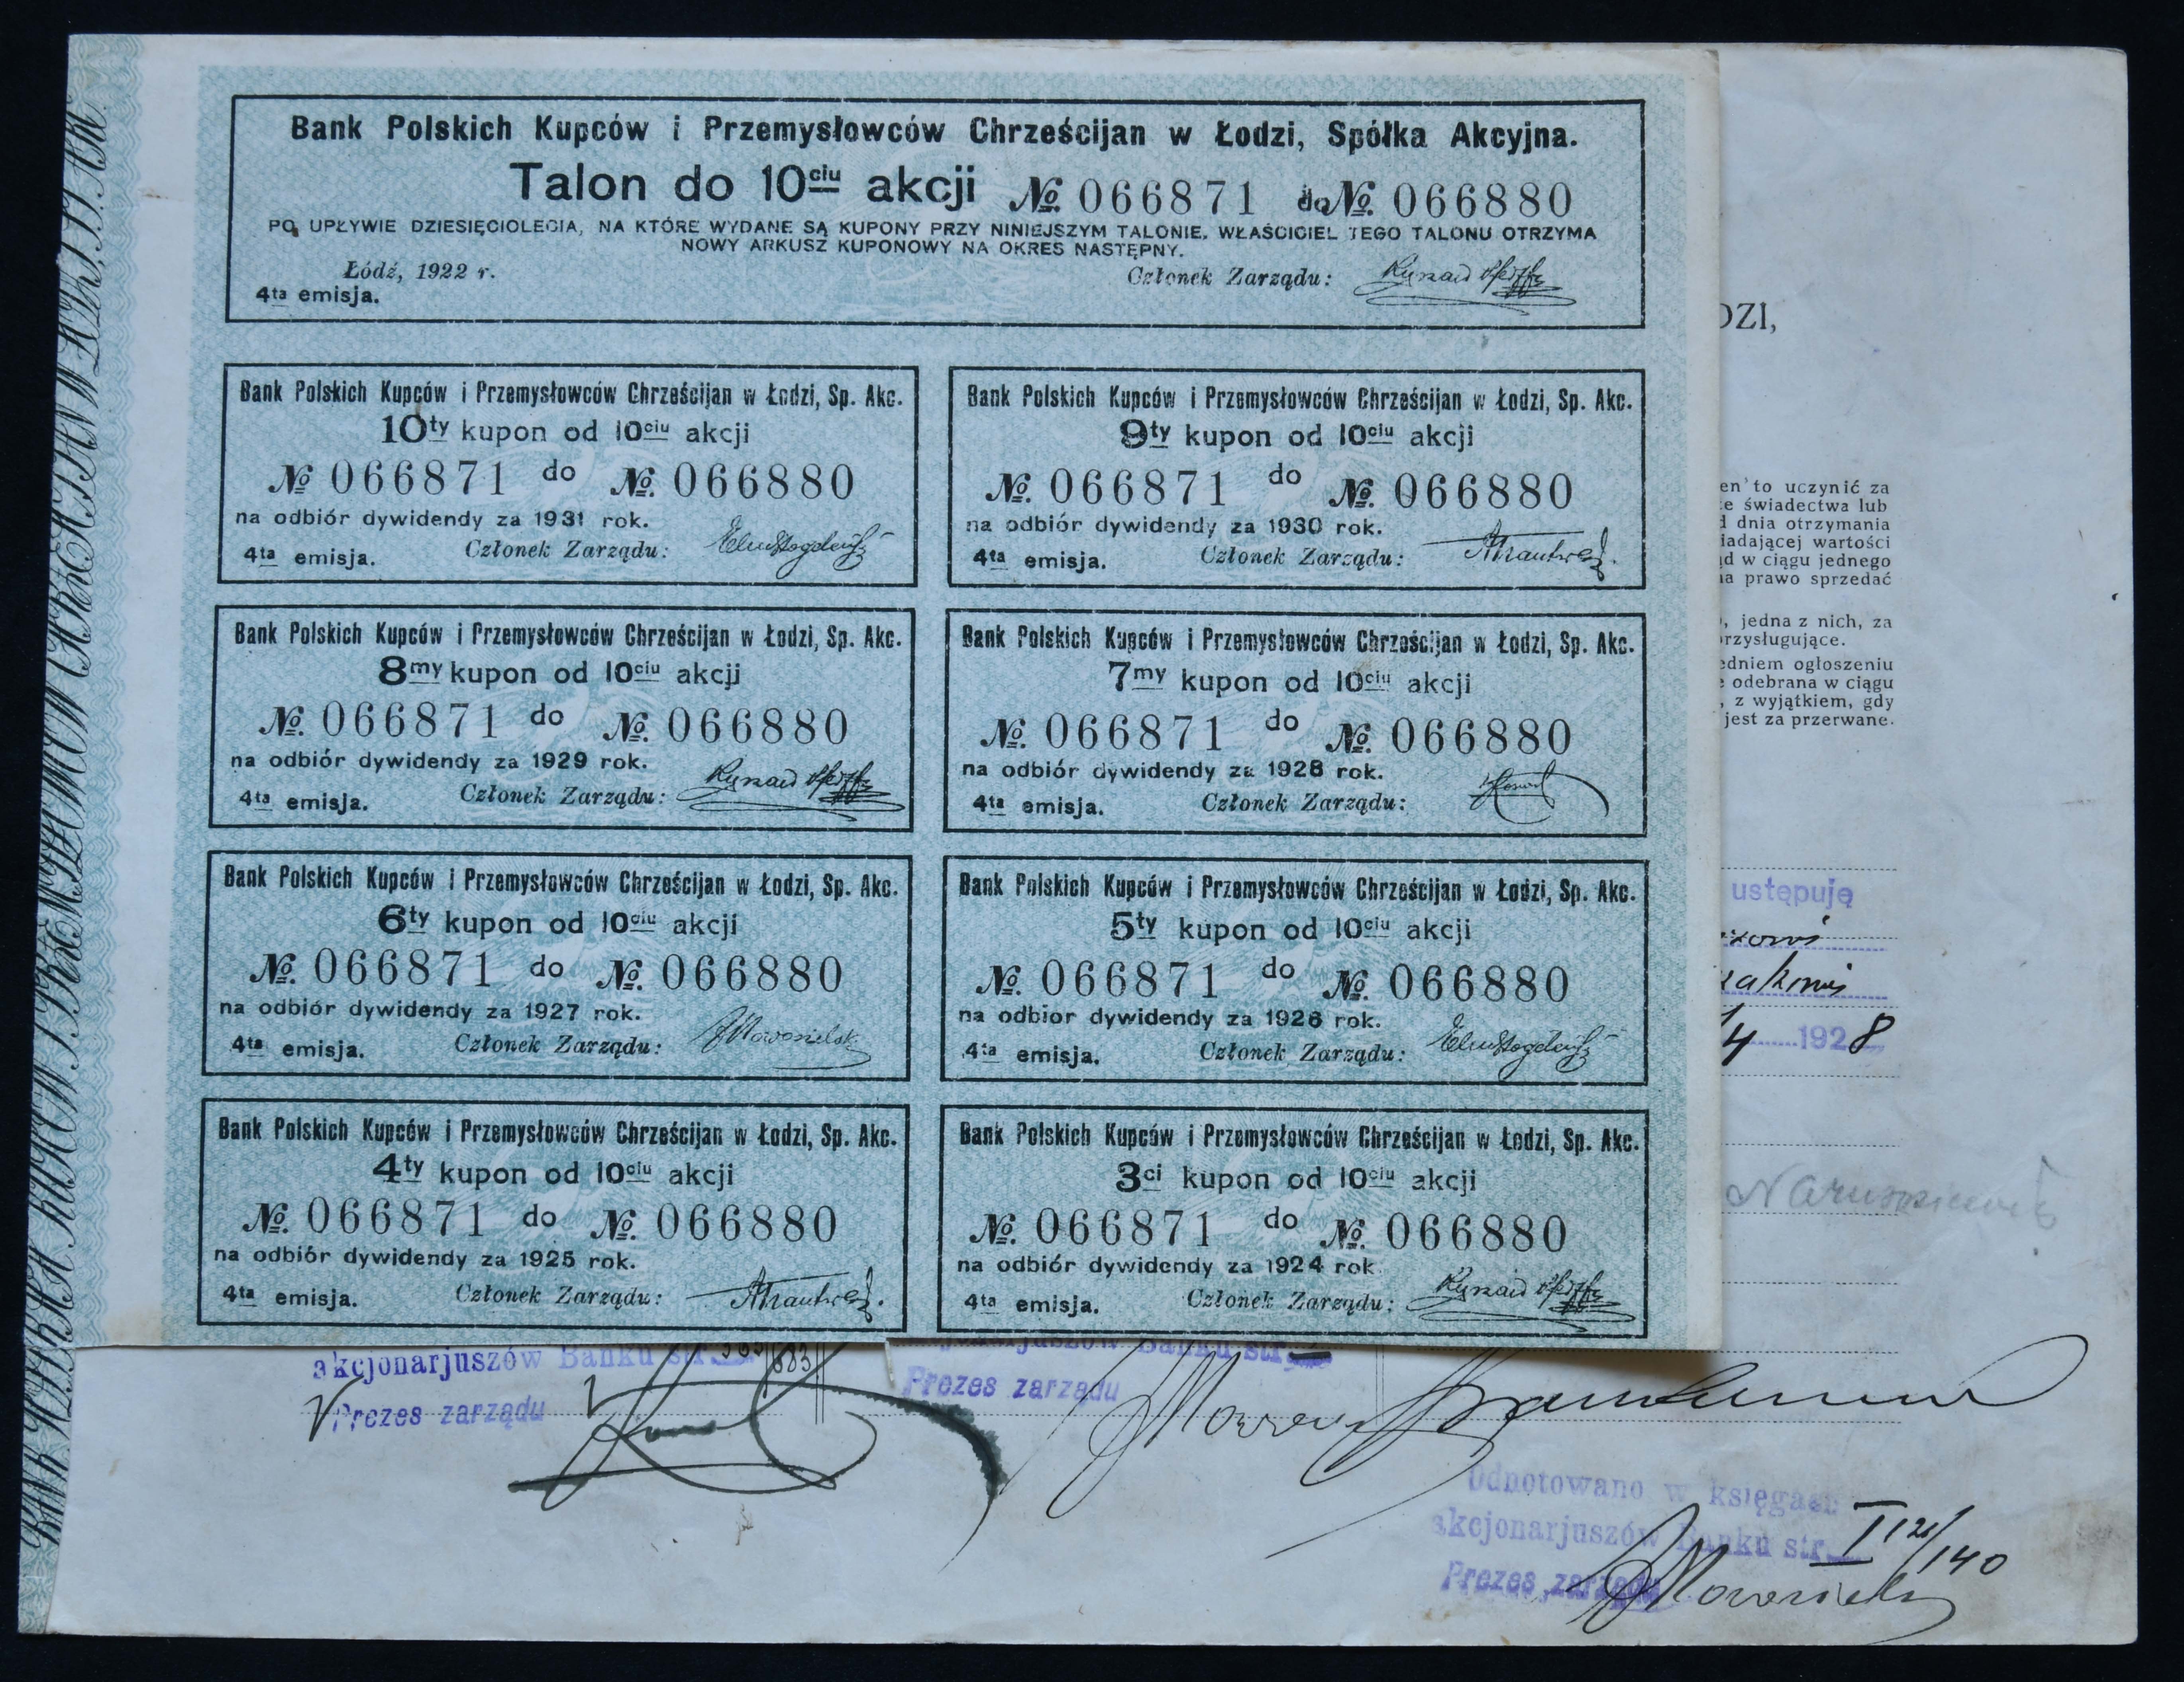 Bank Polskich Kupców i Przemysłowców Chrześcijan w Łodzi, Spółka Akcyjna.
Talon do 10ciu akcji № 066871 do № 066880
PO UPŁYWIE DZIESIĘCIOLECIA, NA KTÓRE WYDANE SĄ KUPONY PRZY NINIEJSZYM TALONIE, WŁAŚCICIEL TEGO TALONU OTRZYMA
NOWY ARKUSZ KUPONOWY NA OKRES NASTĘPNY.
Łódź, 1922 r.
4ta emisja.
Członek Zarządu:
Bank Polskich Kupców i Przemysłowców Chrześcijan w Łodzi, Sp. Akc.
10ty kupon od 10ciu akcji
№ 066871 do № 066880
na odbiór dywidendy za 1931 rok.
4ta emisja. Członek Zarządu:
Bank Polskich Kupców i Przemysłowców Chrześcijan w Łodzi, Sp. Akc.
9ty kupon od 10ciu akcji
№ 066871 do № 066880
na odbiór dywidendy za 1930 rok.
4ta emisja. Członek Zarządu:
Bank Polskich Kupców i Przemysłowców Chrześcijan w Łodzi, Sp. Akc.
8my kupon od 10ciu akcji
№ 066871 do № 066880
na odbiór dywidendy za 1929 rok.
4ta emisja. Członek Zarządu:
Bank Polskich Kupców i Przemysłowców Chrześcijan w Łodzi, Sp. Akc.
7my kupon od 10ciu akcji
№ 066871 do № 066880
na odbiór dywidendy za 1928 rok.
4ta emisja. Członek Zarządu:
Bank Polskich Kupców i Przemysłowców Chrześcijan w Łodzi, Sp. Akc.
6ty kupon od 10ciu akcji
№ 066871 do № 066880
na odbiór dywidendy za 1927 rok.
4ta emisja. Członek Zarządu:
Bank Polskich Kupców i Przemysłowców Chrześcijan w Łodzi, Sp. Akc.
5ty kupon od 10ciu akcji
№ 066871 do № 066880
na odbior dywidendy za 1926 rok.
4ta emisja. Członek Zarządu:
Bank Polskich Kupców i Przemysłowców Chrześcijan w Łodzi, Sp. Akc.
4ty kupon od 10ciu akcji
№ 066871 do № 066880
na odbiór dywidendy za 1925 rok.
4ta emisja. Członek Zarządu:
Bank Polskich Kupców i Przemysłowców Chrześcijan w Łodzi, Sp. Akc.
3ci kupon od 10ciu akcji
№ 066871 do № 066880
na odbiór dywidendy za 1924 rok
4ta emisja. Członek Zarządu:
DZI,
en to uczynić za
e świadectwa lub
d dnia otrzymania
iadającej wartości
d w ciągu jednego
a prawo sprzedać
, jedna z nich, za
rzysługujące.
edniem ogłoszeniu
e odebrana w ciągu
, z wyjątkiem, gdy
jest za przerwane.
ustępuję
/4 1928
akcjonarjuszów Banku str.
Prezes zarządu
akcjonarjuszów Banku str.
Prezes zarządu
Odnotowano w księgach
akcjonarjuszów Banku str. I 121/140
Prezes zarządu